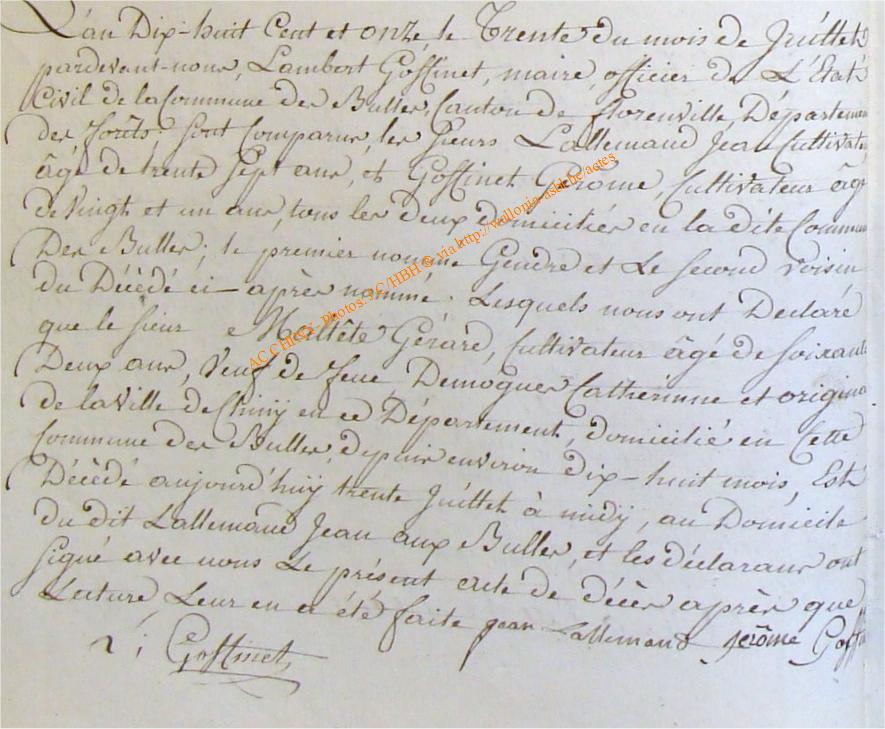 L'an Dix-huit Cent et onze, le Trente du mois de Juillet
pardevant-nous, Lambert Goffinet, maire, officier de L'État
Civil de la Commune des Bulles, Canton de florenville, Départemen
des forêts: sont Comparus, les sieurs Lallemand Jean Cultivate
âgé de trente sept ans, et Goffinet Gérôme, Cultivateur âgé
de vingt et un ans, tous les deux domiciliés en la dite Commun
Des Bulles; le premier nommé Gendre et Le second voisin
du Décédé ci-après nommé. Lesquels nous ont Declaré
que le sieur Maltête Gérard, Cultivateur âgé de soixante
Deux ans, Veuf de feue Demogues Catherinne et origina
de la Ville de Chiny en ce Département, domicilié en Cette
Commune des Bulles, depuis environ dix-huit mois, Est
Décédé aujourd'huÿ trente Juillet à midÿ, au Domicile
du dit Lallemand Jean aux Bulles, et les déclarans ont
signé avec nous Le présent acte de décès après que
Lecture, Leur en a été faite jean lallemand jerôme Goffi
Goffinet
AC CHINY - Photos: SC/HBH © via http://wallonia-asbl.be/actes